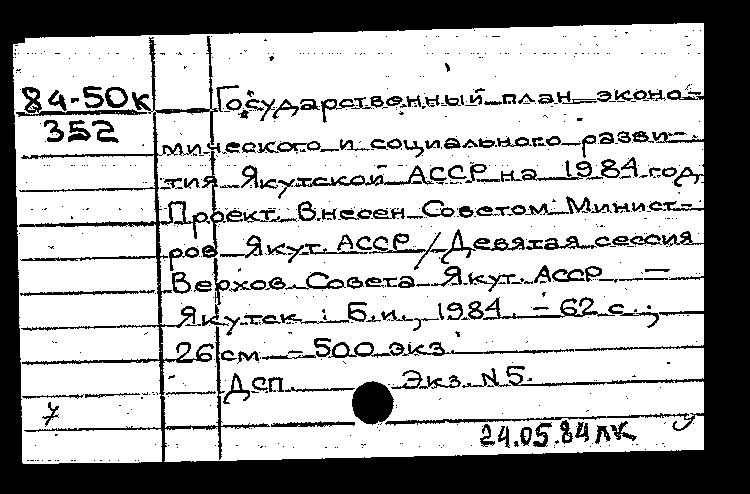 84-50к
352
Государственный план эконо-
мического и социального разви-
тия Якутской АССР на 1984 год.
Проект. Внесен Советом Минист-
ров Якут. АССР / Девятая сессия
Верхов. Совета Якут. АССР. —
Якутск : Б.и., 1984. - 62 с.;
26 см - 500 экз.
ДСП. Экз. N 5.
7
24.05.84 ЛК У